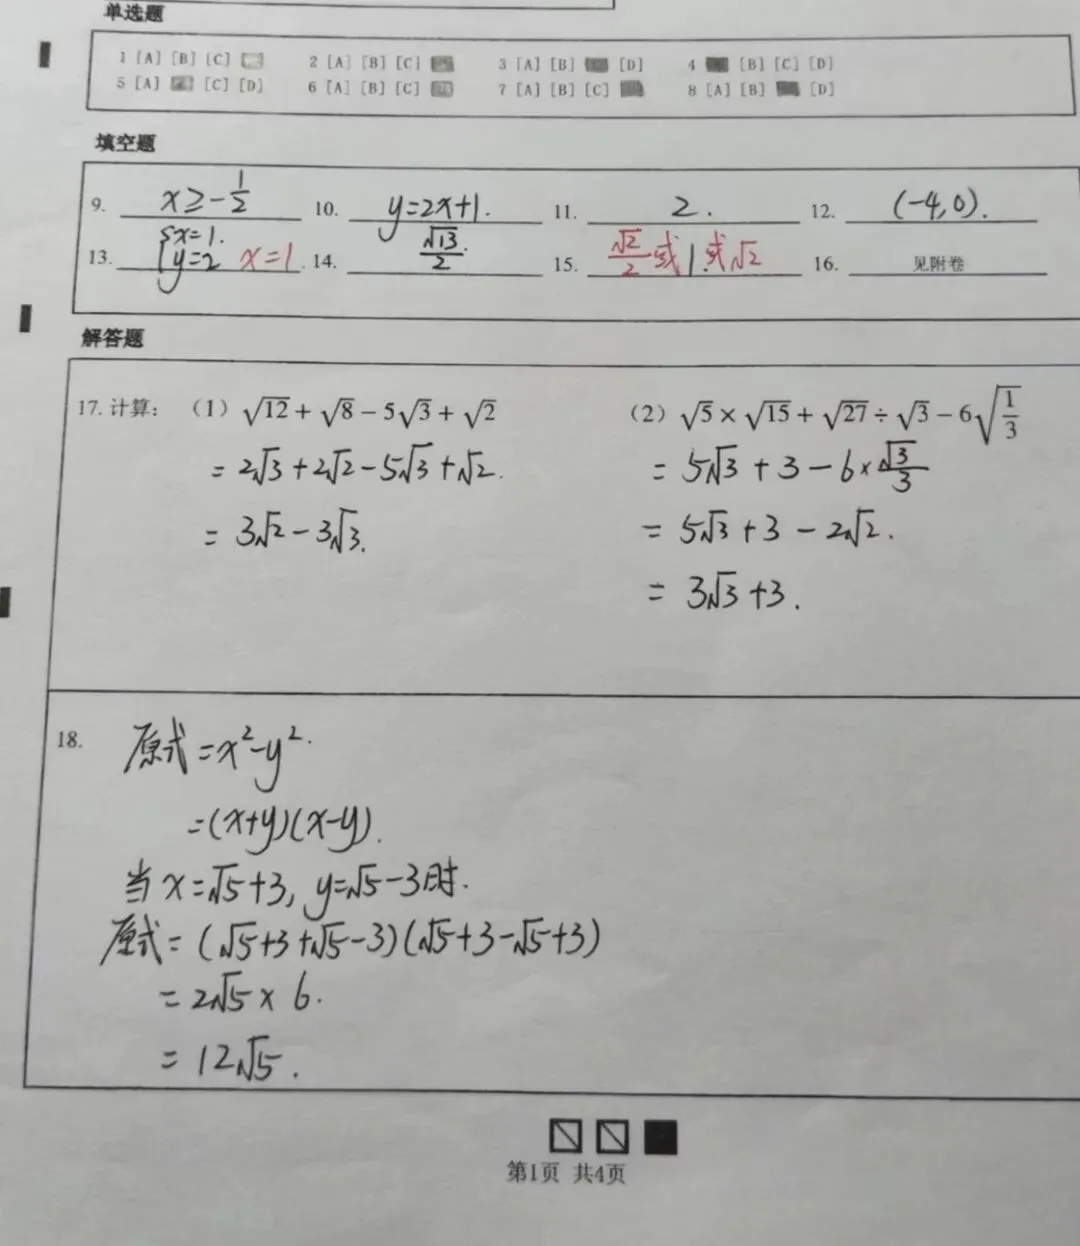 单选题
1 [A] [B] [C] 2 [A] [B] [C] 3 [A] [B] [D] 4 [B] [C] [D]
5 [A] [C] [D] 6 [A] [B] [C] 7 [A] [B] [C] 8 [A] [B] [D]
填空题
9. x≥-1/2 10. y=2x+1. 11. 2. 12. (-4,0).
13. {x=1. y=2 x=1. 14. √13/2. 15. √2/2或1.或√2 16. 见附卷
解答题
17. 计算： （1）√12+√8-5√3+√2 （2）√5×√15+√27÷√3-6√(1/3)
=2√3+2√2-5√3+√2. =5√3+3-6×√3/3
=3√2-3√3. =5√3+3-2√2.
=3√3+3.
18. 原式=x²-y².
=(x+y)(x-y).
当x=√5+3,y=√5-3时.
原式=(√5+3+√5-3)(√5+3-√5+3)
=2√5×6.
=12√5.
第1页 共4页